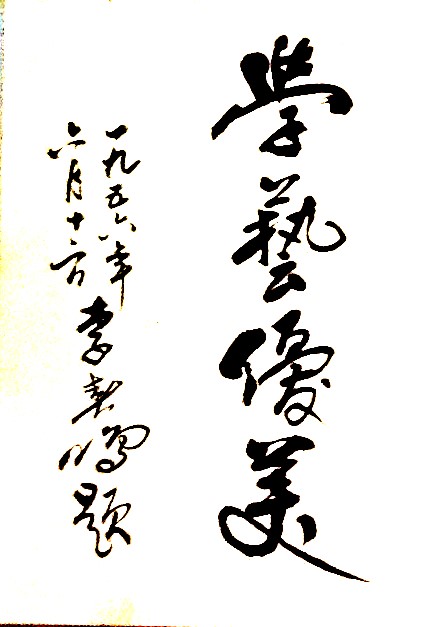 學藝優美
一九五六年
六月十二日
李春鳴題